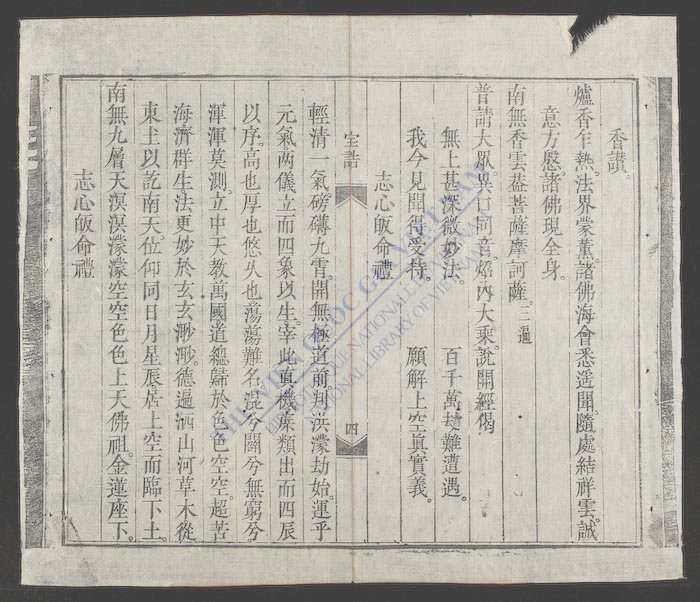 香讃。
爐香乍𤑔。法界蒙薰。諸佛海會悉遥聞。隨處結祥雲。誠
意方慇。諸佛現全身。
南無香雲葢菩薩摩訶薩。三遍
普請大眾。異口同音。 内大乗說開經偈
無上甚深微妙法。 百千萬劫難遭遇。
我今見聞得受持。 願解上空真實義。
志心皈命禮
宝誥
四
輕清一氣。磅礴九霄。開無極道前。判洪濛劫始。運乎
元氣。两儀立而四象以生。宰此真機。庶類出而四辰
以序。高也厚也悠久也。蕩蕩難名。混兮闢兮無窮兮。
渾渾莫測。立中天教。萬國道總歸於色色空空。超苦
海濟群生。法更妙於玄玄渺渺。德遍洒山河草木。從
東土以訖南天。位仰同日月星辰。居上空而臨下土。
南無九層天溟溟濛濛空空色色上天佛祖。金蓮座下。
志心皈命禮
THƯ VIỆN QUỐC GIA VIỆT NAM
BIBLIOTHEQUE NATIONALE DU VIETNAM
NATIONAL LIBRARY OF VIETNAM